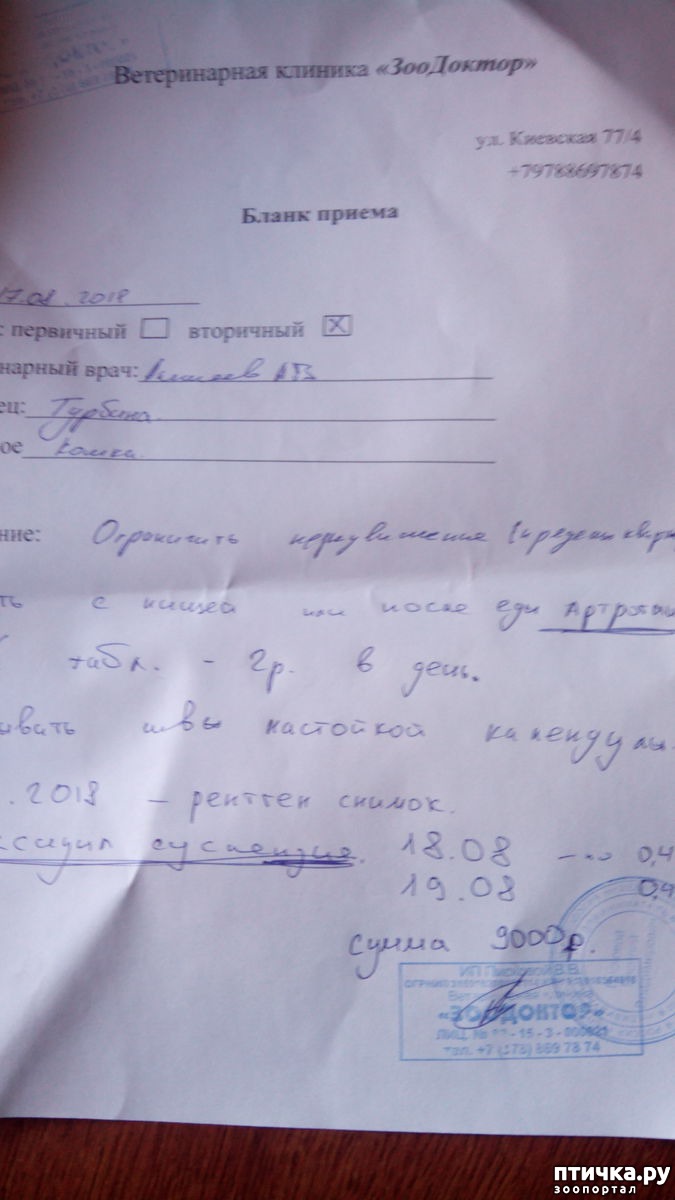 Ветеринарная клиника «ЗооДоктор»
ул. Киевская 77/4
+79788697874
Бланк приема
17.08.2018
: первичный вторичный X
нарный врач: АВ
ец: Турбина
ое
ние: Ограничить передвижения (пределы
ть с пищей или после еды Артро
табл. - 2р. в день.
ывать швы настойкой календулы.
.2018 - рентген снимок.
ксидил суспензия. 18.08 - по 0,4
19.08 0,4
сумма 9000р.
ИП В.В.
«ЗООДОКТОР»
ЛИЦ. №
тел. +7 (978) 869 78 74
птичка.ру
зоопортал